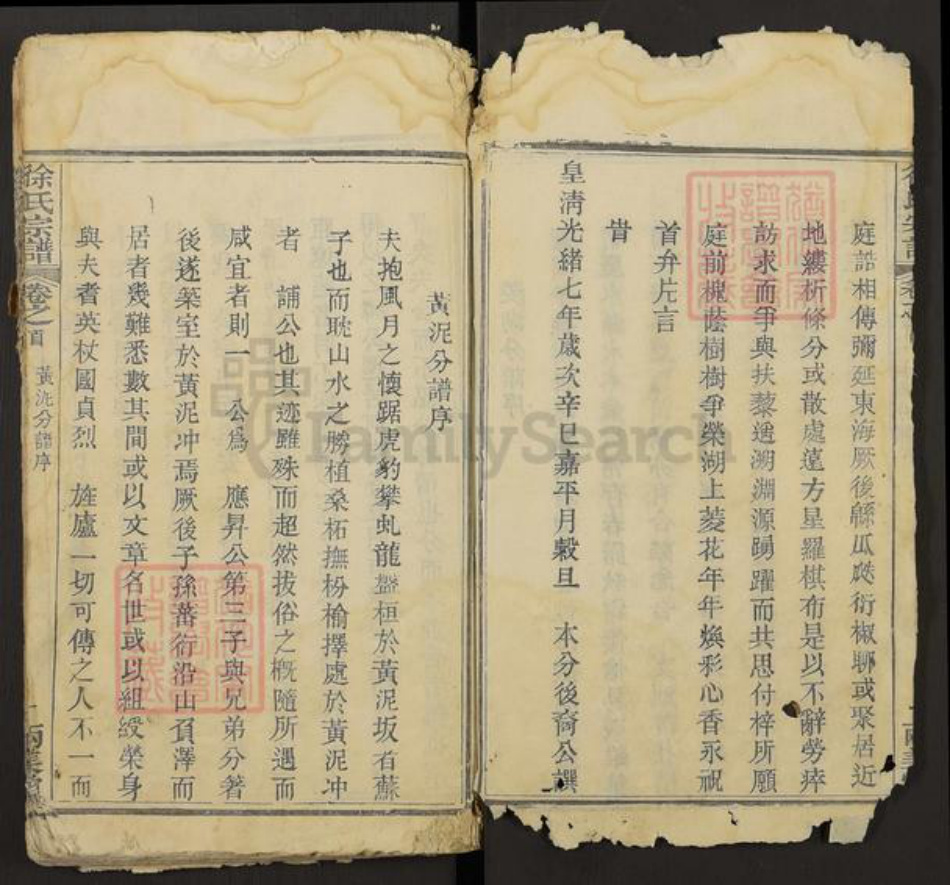 庭誥相傳彌延東海厥後緜瓜瓞衍椒聊或聚居近
地縷析條分或散處遠方星羅棋布是以不辭勞瘁
訪求而爭與扶藜遙溯淵源踴躍而共思付梓所願
庭前槐蔭樹樹爭榮湖上菱花年年煥彩心香永祝
首弁片言
旹
皇淸光緒七年歲次辛巳嘉平月穀旦 本分後裔公譔
黃泥分譜序
夫抱風月之懷踞虎豹攀虬龍盤桓於黃泥坂者蘇
子也而耽山水之勝植桑柘撫枌榆擇處於黃泥冲
者 誧公也其迹雖殊而超然拔俗之槪隨所遇而
咸宜者則一 公爲 應昇公第三子與兄弟分著
後遂築室於黃泥冲焉厥後子孫蕃衍沿山負澤而
居者幾難悉數其間或以文章名世或以組綬榮身
與夫耆英杖國貞烈 旌廬一切可傳之人不一而
徐氏宗譜 卷之首 黃泥分譜序
FamilySearch